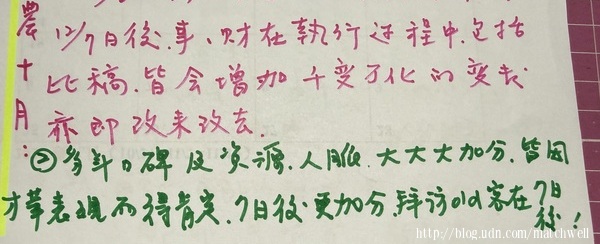 農十月:
12/7日後.事、財在執行过程中.包括
比稿.皆会增加千变万化的变数
亦即改来改去.
②多斗口碑及資源.人脈.大大大加分.皆因
才華表現而得肯定.7日後更加分.拜訪小小客在7日後!
http://blog.udn.com/matchwell